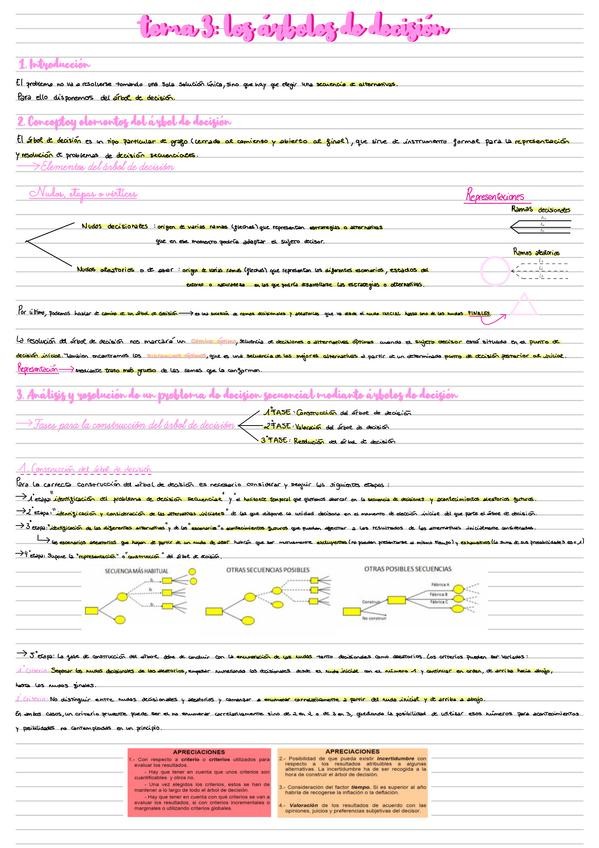 tema 3: los árboles de decisión
1. Introducción
El problema no va a resolverse tomando una sola solución única, sino que hay que elegir una secuencia de alternativas.
Para ello disponemos del árbol de decisión.
2. Concepto y elementos del árbol de decisión
El árbol de decisión es un tipo particular de grafo (cerrado al comienzo y abierto al final), que sirve de instrumento formal para la representación
y resolución de problemas de decisión secuenciales.
→ Elementos del árbol de decisión
Nudos, etapas o vértices
Representaciones
Ramas decisionales
Nudos decisionales : origen de varias ramas (flechas) que representan estrategias o alternativas
que en ese momento podría adoptar el sujeto decisor.
Ramas aleatorias
Nudos aleatorios o de azar : origen de varias ramas (flechas) que representan los diferentes escenarios, estados del
entorno o naturaleza en los que podría desarrollarse las estrategias o alternativas.
Por último, podemos hablar de camino de un árbol de decisión → es una sucesión de ramas decisionales y aleatorias que va desde el nudo inicial hasta uno de los nudos FINALES
La resolución del árbol de decisión nos marcará un camino óptimo, secuencia de decisiones o alternativas óptimas cuando el sujeto decisor está situado en el punto de
decisión inicial. También encontramos los subcaminos óptimos, que es una secuencia de las mejores alternativas a partir de un determinado punto de decisión posterior al inicial.
Representación → mediante trazo más grueso de las ramas que lo conforman.
3. Análisis y resolución de un problema de decision secuencial mediante árboles de decisión
→ Fases para la construcción del árbol de decisión
1ª FASE: Construcción del árbol de decisión
2ª FASE: Valoración del árbol de decisión
3ª FASE: Resolución del árbol de decisión
1. Construcción del árbol de decisión
Para la correcta construcción del árbol de decisión es necesario considerar y seguir las siguientes etapas :
→ 1ª etapa: "identificación del problema de decisión secuencial" y el horizonte temporal que queremos abarcar en la secuencia de decisiones y acontecimientos aleatorios futuros.
→ 2ª etapa: "identificación y consideración de las alternativas iniciales" de las que dispone la unidad decisora en el momento de decisión inicial del que parte el árbol de decisión.
→ 3ª etapa: "identificación de las diferentes alternativas" y de los "escenarios" o acontecimientos futuros que puedan afectar a los resultados de las alternativas inicialmente consideradas.
los escenarios aleatorios que hayan de partir de un nudo de azar habrán que ser mutuamente excluyentes (no pueden presentarse al mismo tiempo) y exhaustivos (la suma de sus probabilidades es 1)
→ 4ª etapa: Supone la "representación" o "construcción" del árbol de decisión.
SECUENCIA MÁS HABITUAL
OTRAS SECUENCIAS POSIBLES
OTRAS POSIBLES SECUENCIAS
Fábrica A
Construir
Fábrica B
Fábrica C
No construir
→ 5ª etapa: La fase de construcción del árbol debe de concluir con la enumeración de los nudos tanto decisionales como aleatorios. Los criterios pueden ser variados:
1º Criterio: Separar los nudos decisionales de los aleatorios, empezar numerando los decisionales desde el nudo inicial con el número 1 y continuar en orden, de arriba hacia abajo,
hasta los nudos finales.
2º Criterio: No distinguir entre nudos decisionales y aleatorios y comenzar a enumerar correlativamente a partir del nudo inicial y de arriba a abajo.
En ambos casos, un criterio prudente puede ser el no enumerar correlativamente sino de 2 en 2 o de 3 en 3, quedando la posibilidad de utilizar esos números para acontecimientos
y posibilidades no contempladas en un principio.
APRECIACIONES
1.- Con respecto a criterio o criterios utilizados para
evaluar los resultados.
- Hay que tener en cuenta que unos criterios son
cuantificables y otros no.
- Una vez elegidos los criterios, estos se han de
mantener a lo largo de todo el árbol de decisión.
- Hay que tener en cuenta con qué criterios se van a
evaluar los resultados, si con criterios incrementales o
marginales o utilizando criterios globales.
APRECIACIONES
2.- Posibilidad de que pueda existir incertidumbre con
respecto a los resultados atribuibles a algunas
alternativas. La incertidumbre ha de ser recogida a la
hora de construir el árbol de decisión.
3.- Consideración del factor tiempo. Si es superior al año
habría de recogerse la inflación o la deflación.
4.- Valoración de los resultados de acuerdo con las
opiniones, juicios y preferencias subjetivas del decisor.